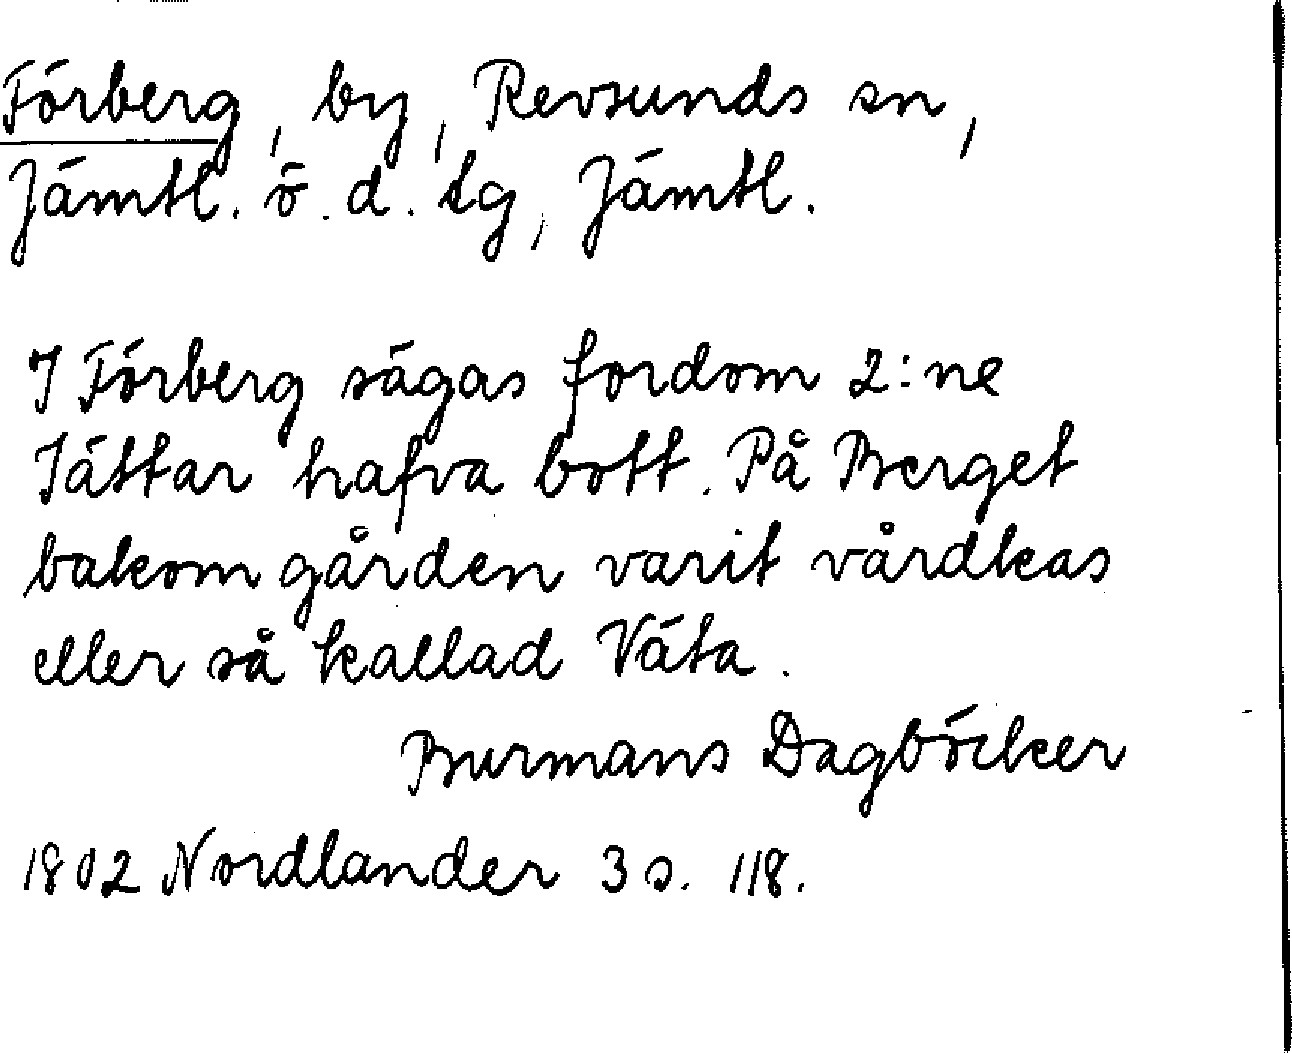 Förberg, by, Revsunds sn,
Jämtl. ö. d. tg, Jämtl.
I Förberg sägas fordom 2:ne
Jättar hafva bott. På Berget
bakom gården varit vårdkas
eller så kallad Väta.
Burmans Dagböcker
1802 Nordlander 3 s. 118.